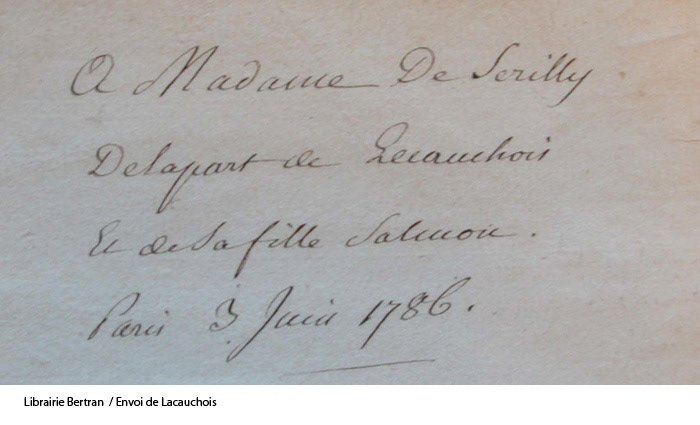 A Madame De Serilly
Delapart de Lecauchois
Et de Sa fille Salmon.
Paris 3 Juin 1786.
Librairie Bertran / Envoi de Lacauchois